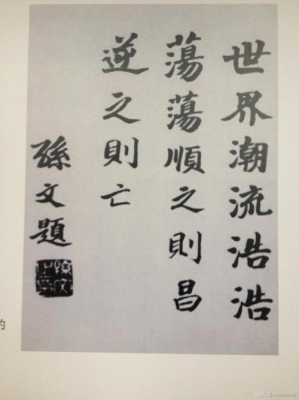 世界潮流浩浩
蕩蕩順之則昌
逆之則亡
孫文題
的